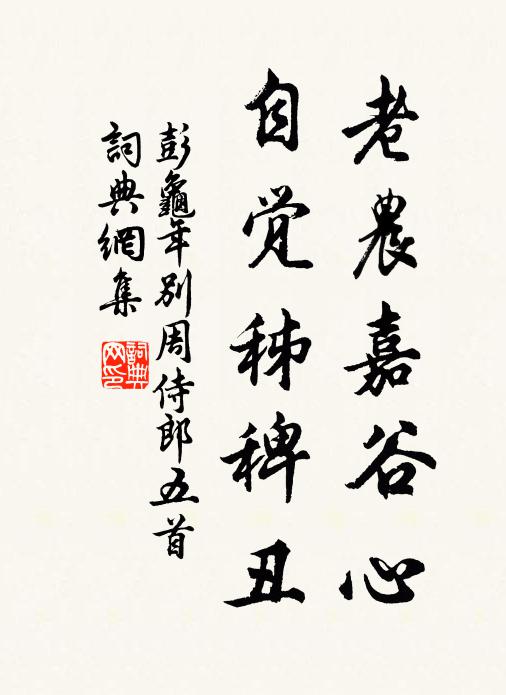 老農嘉谷心
自觉秭稗丑
彭龜年別周侍郎五首
詞典網集
詞典网印